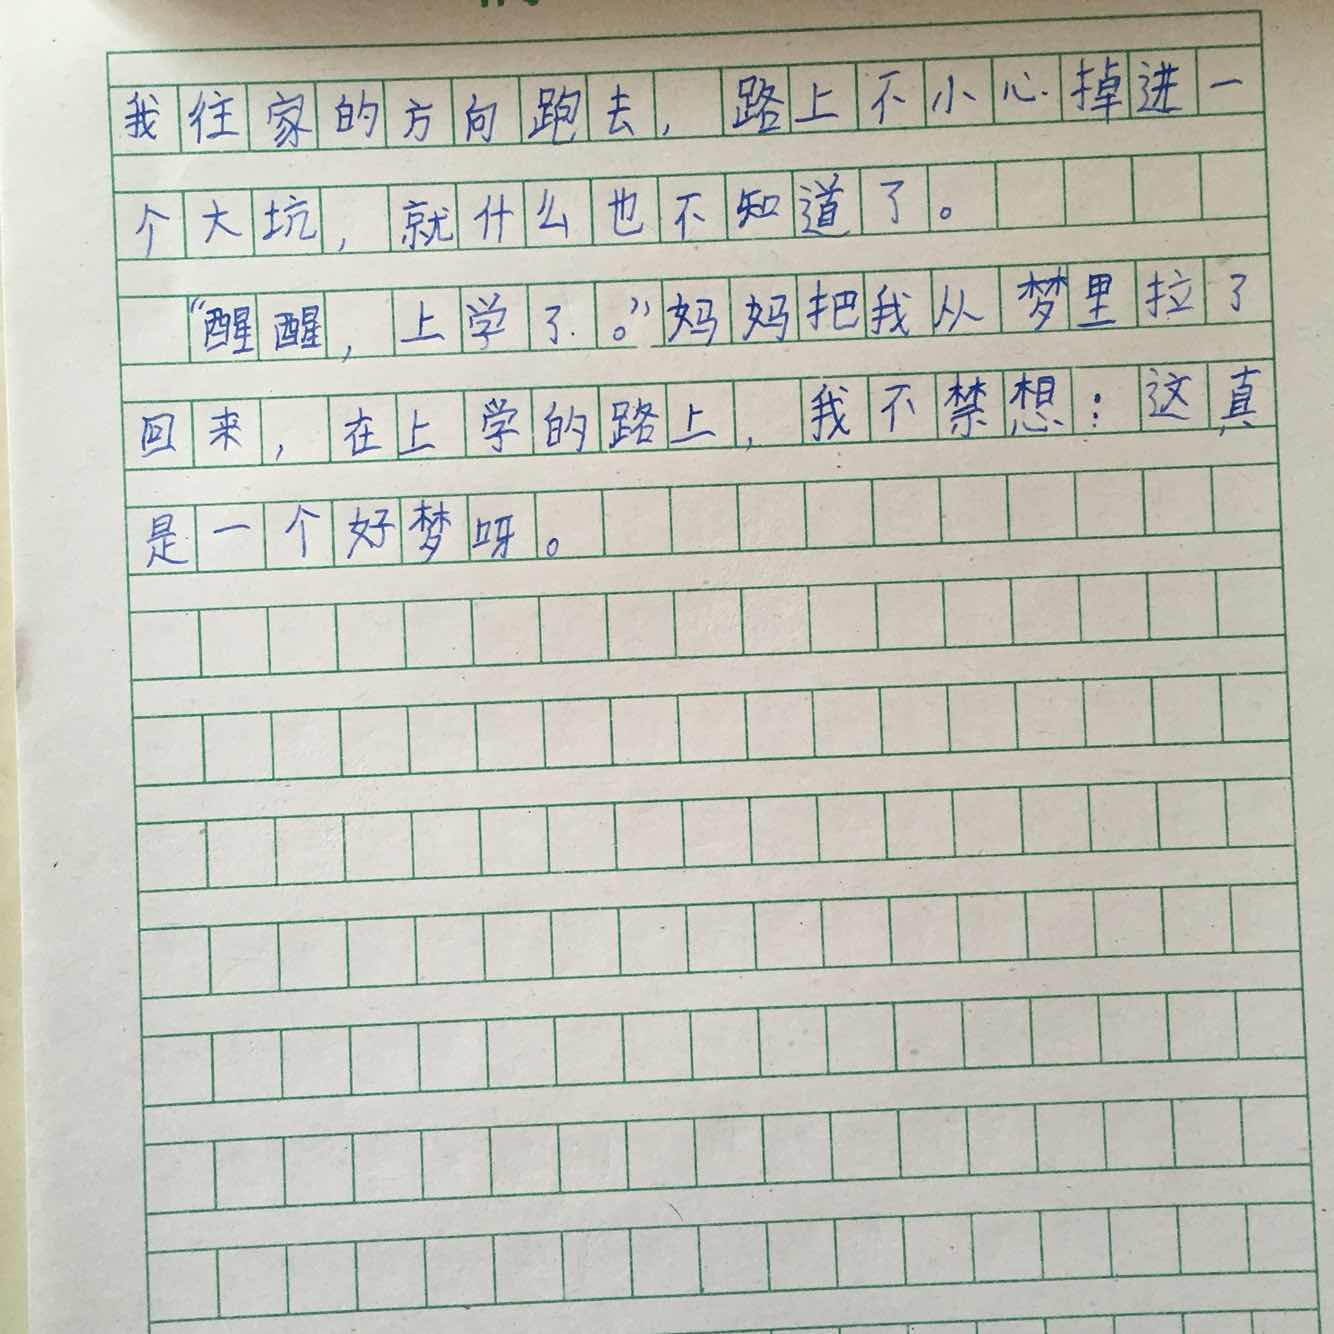 我往家的方向跑去，路上不小心掉进一
个大坑，就什么也不知道了。
“醒醒，上学了。”妈妈把我从梦里拉了
回来，在上学的路上，我不禁想：这真
是一个好梦呀。